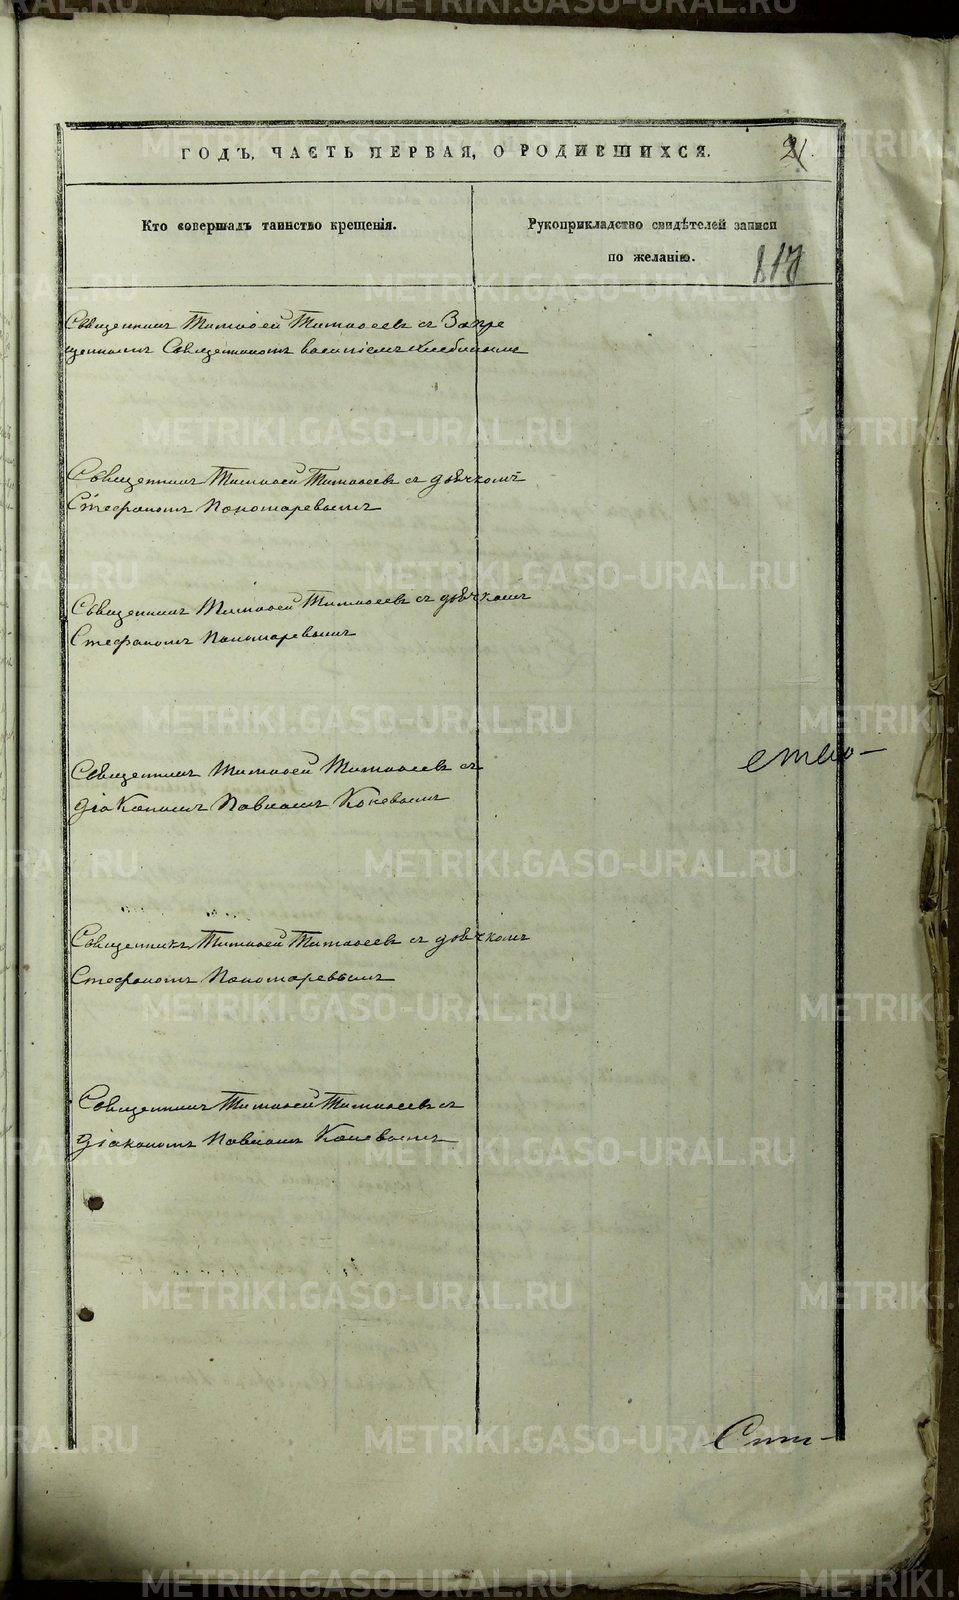 ГОДЪ, ЧАСТЬ ПЕРВАЯ, О РОДИВШИХСЯ.
Кто совершалъ таинство крещенія.
Рукоприкладство свидѣтелей записи
по желанію.
117
Священникъ Тимоѳей Тимоѳеевъ съ Запре
щеннымъ Священникомъ Василіемъ
Священникъ Тимоѳей Тимоѳеевъ съ дьячкомъ
Стефаномъ Пономаревымъ
Священникъ Тимоѳей Тимоѳеевъ съ дьячкомъ
Стефаномъ Пономаревымъ
Священникъ Тимоѳей Тимоѳеевъ съ
діакономъ Павломъ Коневымъ
ство-
Священникъ Тимоѳей Тимоѳеевъ съ дьячкомъ
Стефаномъ Пономаревымъ
Священникъ Тимоѳей Тимоѳеевъ съ
діакономъ Павломъ Коневымъ
METRIKI.GASO-URAL.RU